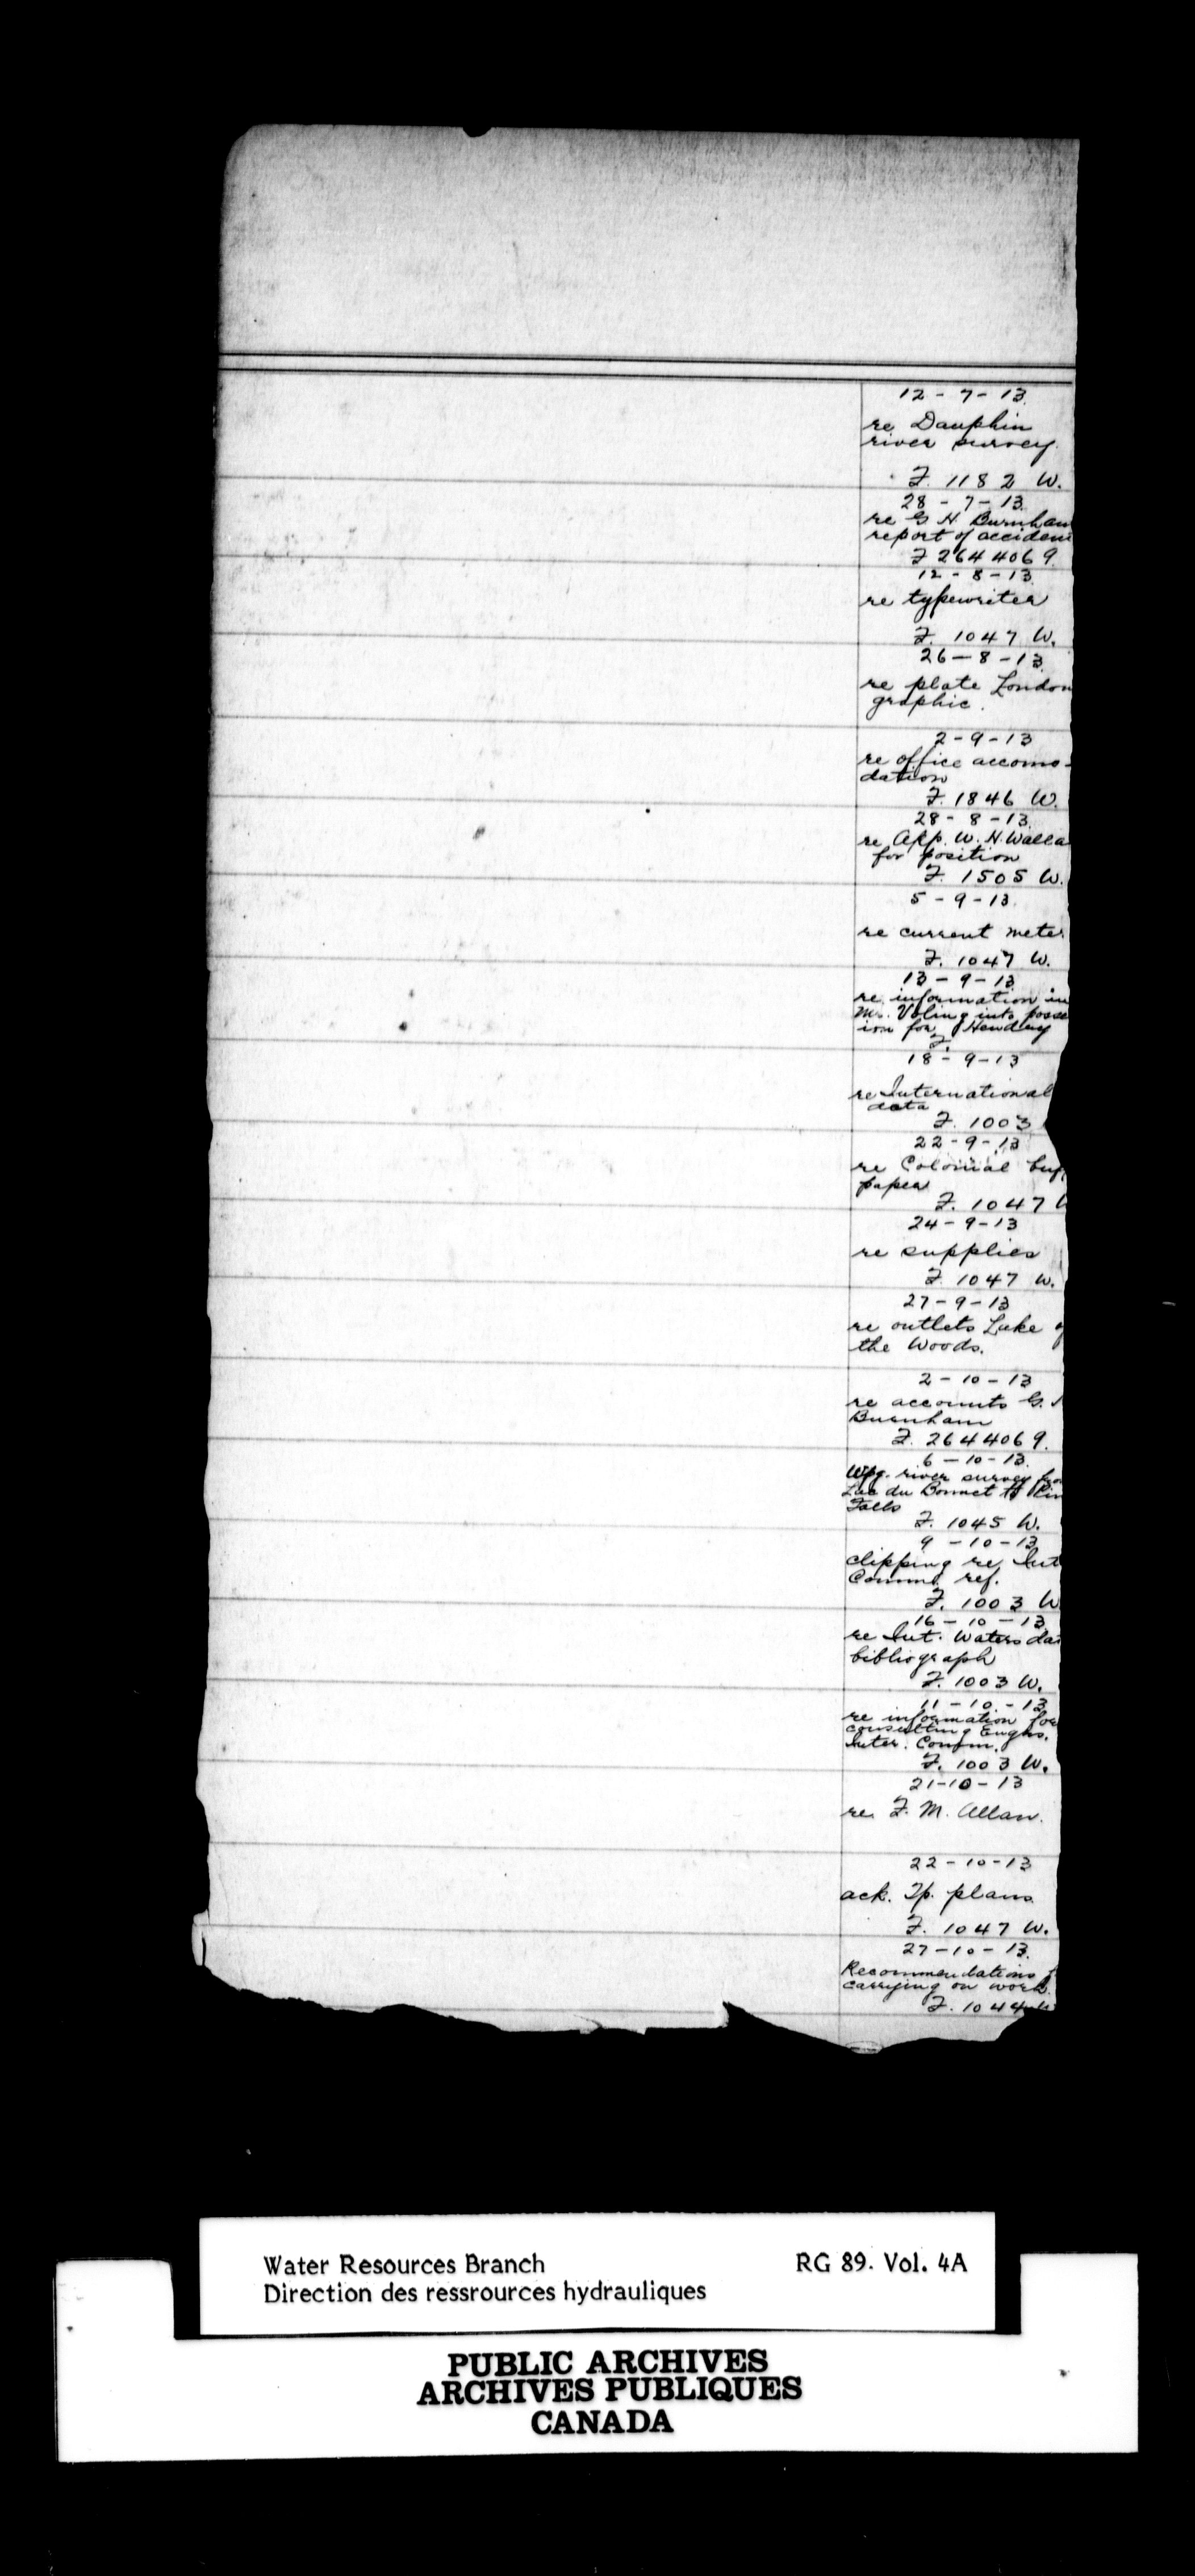 12-7-13
re Dauphin
river survey.
F. 1182 W.
28-7-13
re G H Burnham
report of acciden
F 2644069
12-8-13
re typewriter
F. 1047 W.
26-8-13
re plate London
graphic.
2-9-13
re office accomo-
dation
F. 1846 W.
28-8-13
re App. W. H. Walla
for position
F. 1505 W.
5-9-13
re current meter
F. 1047 W.
13-9-13
re information in
Mr. into posse
ion for Hendry
F.
18-9-13
re International
data
F. 1003
22-9-13
re Colonial
paper
F. 1047
24-9-13
re supplies
F. 1047 W.
27-9-13
re outlets Lake
the Woods.
2-10-13
re accounts G.
Burnham
F. 2644069.
6-10-13
Wpg. river survey
Lac du Bonnet to
Falls
F. 1045 W.
9-10-13
clipping re Int
Comm. ref.
F. 1003 W
16-10-13
re Int. Waters
bibliograph
F. 1003 W.
11-10-13
re information for
consulting Engrs.
Inter. Comm.
F. 1003 W.
21-10-13
re. F. M. Allan.
22-10-13
ack. Tp. plans
F. 1047 W.
27-10-13.
Recommendations
carrying on work.
F. 1044
Water Resources Branch RG 89. Vol. 4A
Direction des ressrources hydrauliques
PUBLIC ARCHIVES
ARCHIVES PUBLIQUES
CANADA